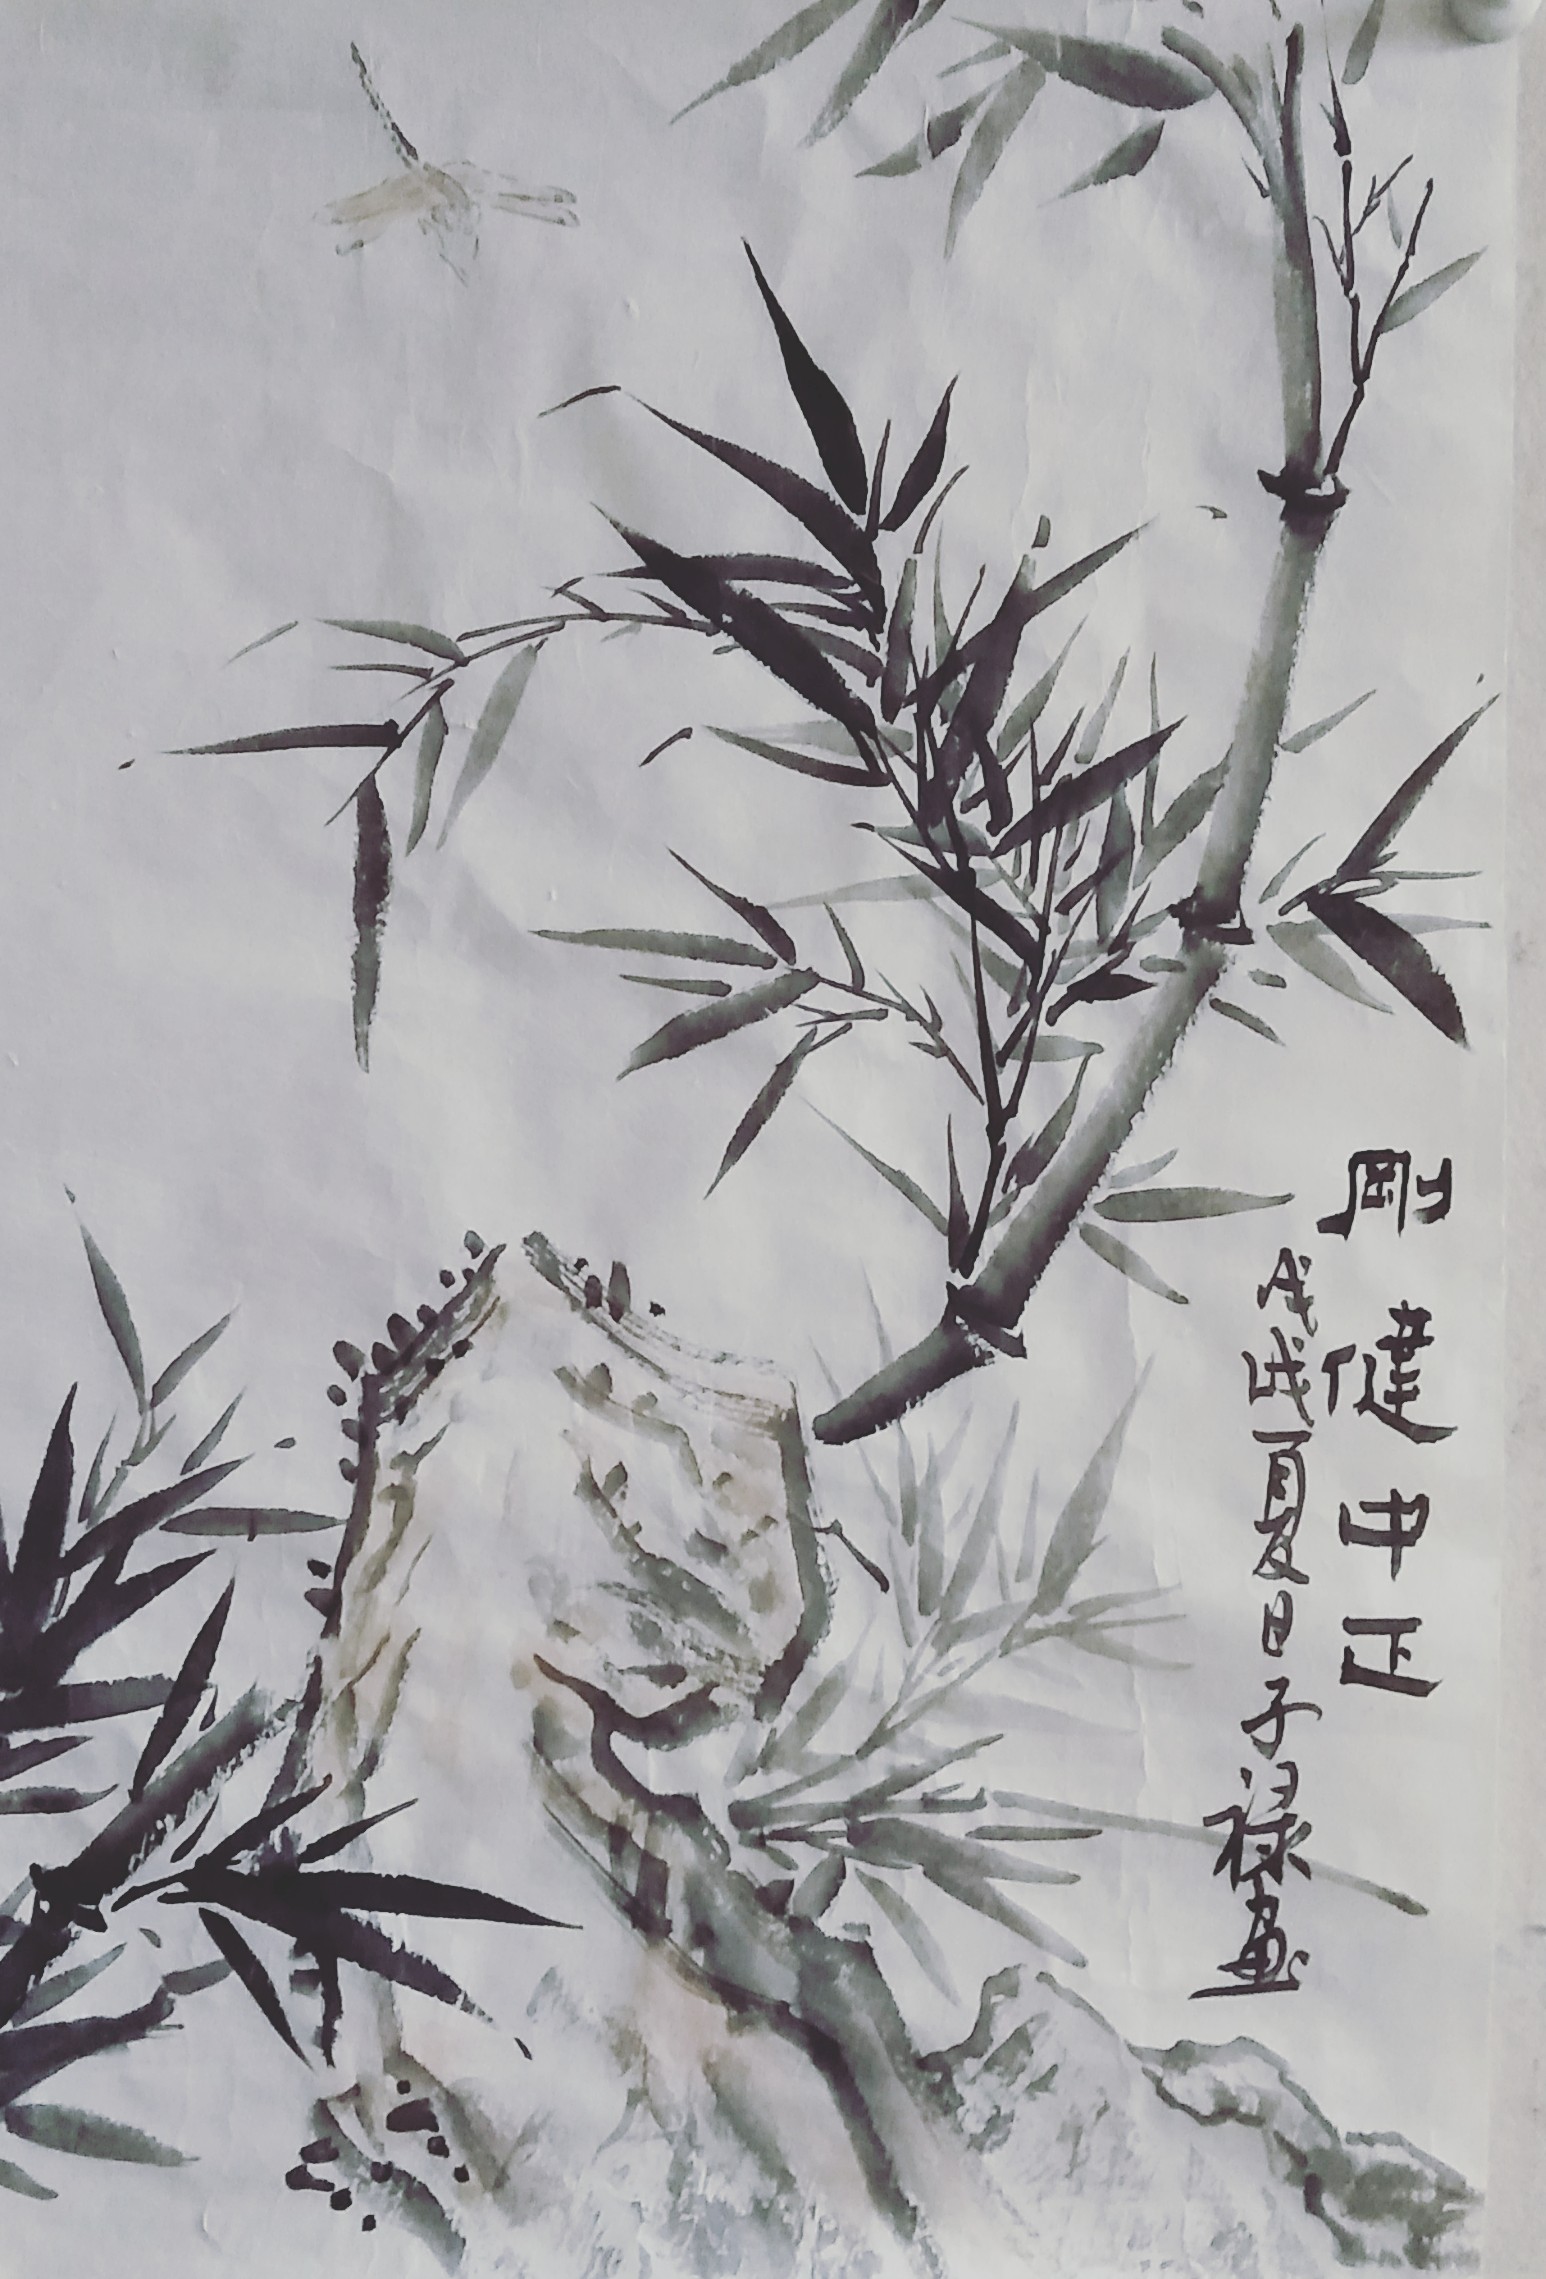 剛健中正
戊戌夏日子禄画